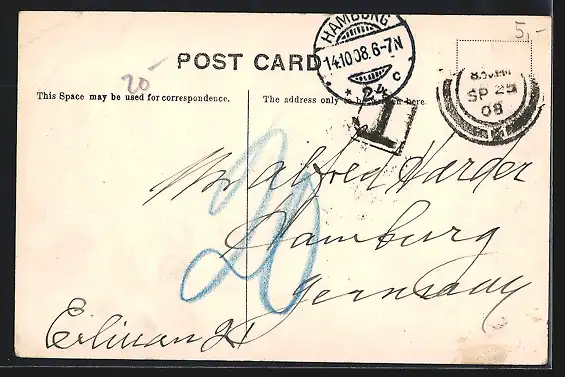 5,-
POST CARD
HAMBURG
14.10.08.6-7N
* 24 c
20-
SP 25
08
This Space may be used for correspondence.
The address only to be written here.
T
20
Mr Alfred Harder
Hamburg
Germany